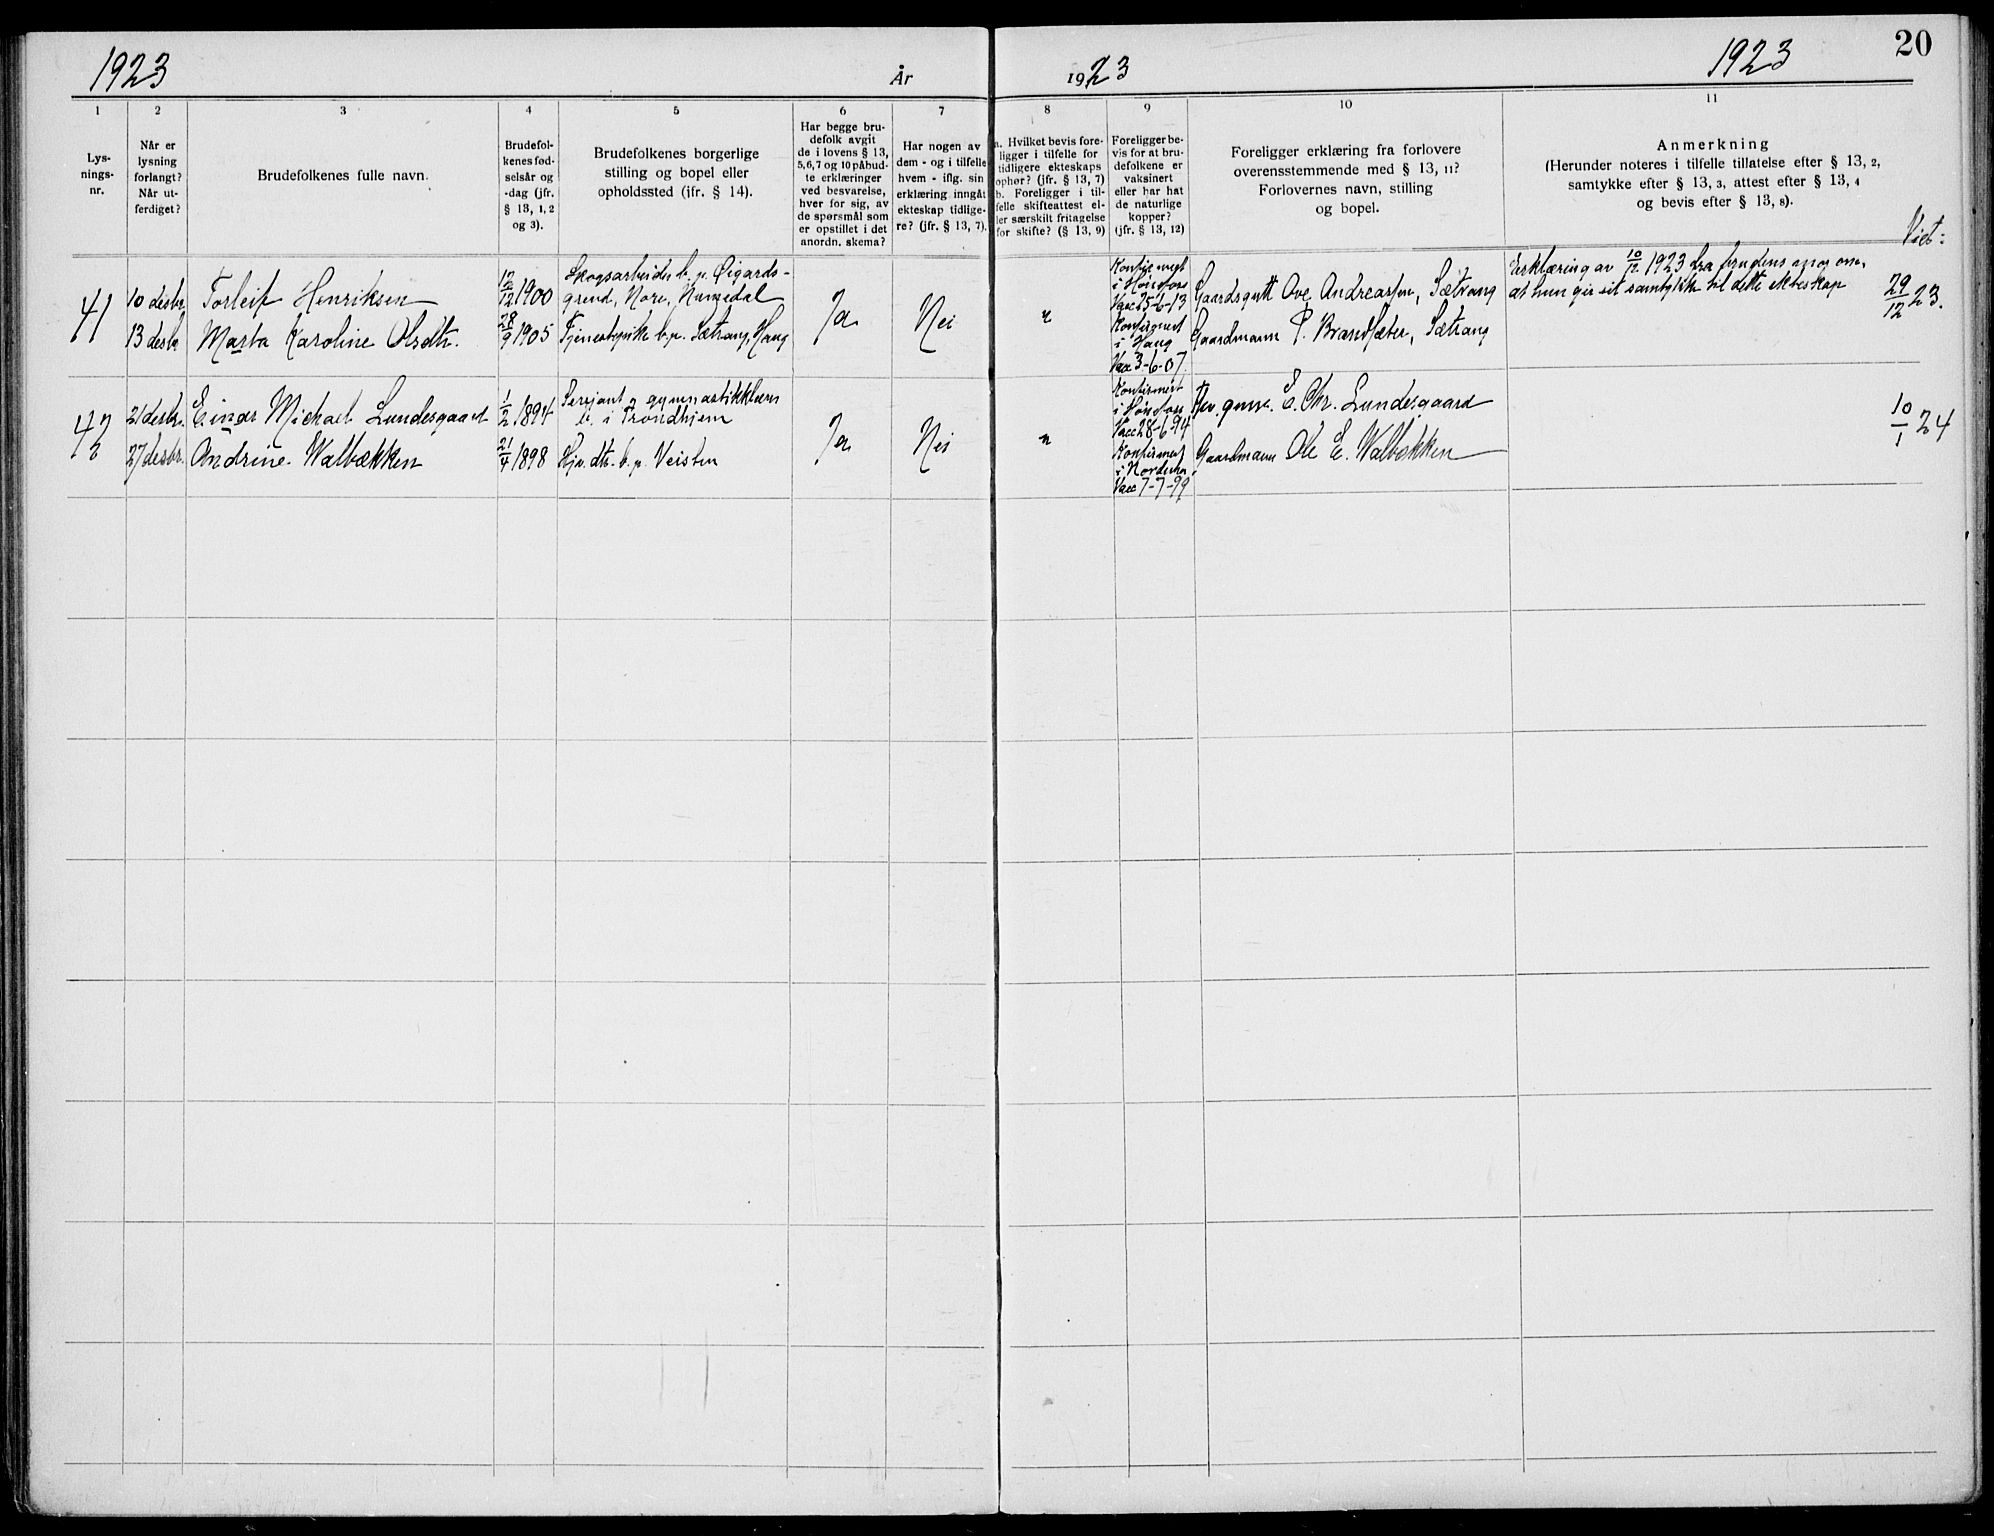 1923
År
1923
1923
20
1
2
3
4
5
6
7
8
9
10
11
Lys-
nings-
nr.
Når er
lysning
forlangt?
Når ut-
ferdiget?
Brudefolkenes fulle navn.
Brudefol-
kenes fød-
selsår og
-dag (jfr.
§ 13, 1, 2
og 3).
Brudefolkenes borgerlige
stilling og bopel eller
opholdssted (jfr. § 14).
Har begge bru-
defolk avgit
de i lovens § 13,
5,6,7 og 10 påbud-
te erklæringer
ved besvarelse,
hver for sig, av
de spørsmål som
er opstillet i det
anordn. skema?
Har nogen av
dem - og i tilfelle
hvem - iflg. sin
erklæring inngåt
ekteskap tidlige-
re? (jfr. § 13, 7).
a. Hvilket bevis fore-
ligger i tilfelle for
tidligere ekteskaps
ophør? (jfr. § 13, 7)
b. Foreligger i til-
felle skifteattest el-
ler særskilt fritagelse
for skifte? (§ 13, 9)
Foreligger be-
vis for at bru-
defolkene er
vaksinert
eller har hat
de naturlige
kopper?
(jfr. § 13, 12)
Foreligger erklæring fra forlovere
overensstemmende med § 13, 11?
Forlovernes navn, stilling
og bopel.
Anmerkning
(Herunder noteres i tilfelle tillatelse efter § 13, 2,
samtykke efter § 13, 3, attest efter § 13, 4
og bevis efter § 13, 8).
Viet:
41
10 desbr.
13 desbr
Torleif Henriksen
Marta Karoline Olsdtr.
12/12 1900
28/9 1905
Skogsarbeider b. p. Øigards-
grend, Nore, Numedal
Tjenestepike b. p. Sætrang, Haug
Ja
Nei
Konfirmert
i Hønefoss
Vacc 25-6-13
Konfirmert
i Haug
Vacc 3-6-07
Gaardsgutt Ove Andreassen, Sætrang
Gaardmann P. Brandsæter, Sætrang
Erklæring av 10/12 1923 fra brudens mor om,
at hun gir sit samtykke til dette ekteskap
29/12 23.
42
21 desbr.
27 desbr.
Einar Michael Lundesgaard
Andrine Walbækken
1/2 1894
21/4 1898
Sersjant og gymnastikklærer
b. i Trondhjem
Hjv. dtr. b. p. Veisten
Ja
Nei
Konfirmert
i Hønefoss
Vacc 28-6-94
Konfirmert
i Norderhov
Vacc 7-7-99
E. Chr. Lundesgaard
Gaardmann Ole E. Walbækken
10/1 24